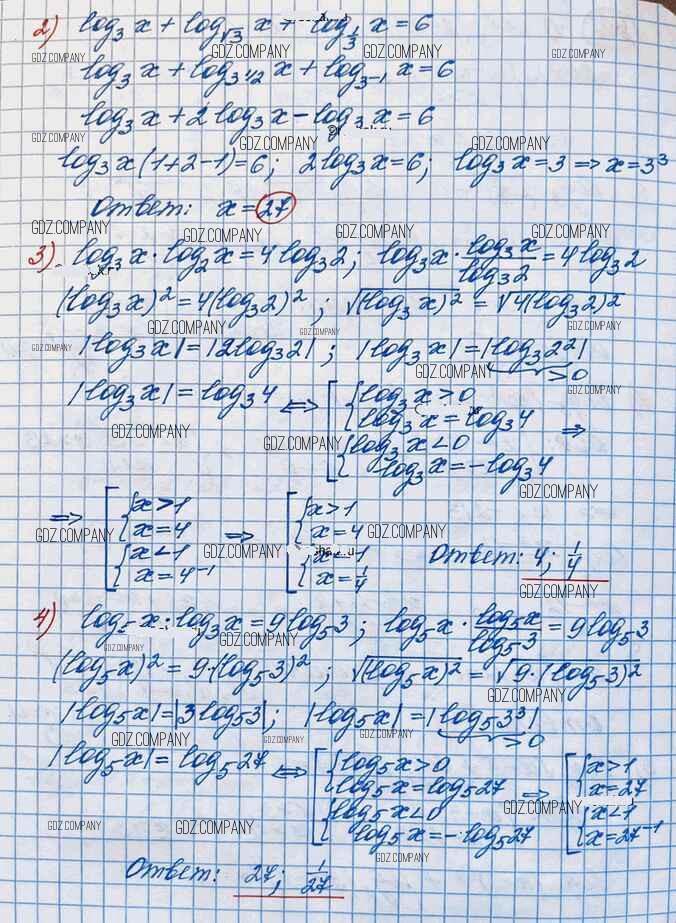 2) log₃ x + log_√3 x + log_1/3 x = 6
GDZ.COMPANY GDZ.COMPANY GDZ.COMPANY GDZ.COMPANY
log₃ x + log_3^1/2 x + log_3^-1 x = 6
log₃ x + 2 log₃ x - log₃ x = 6
GDZ.COMPANY GDZ.COMPANY GDZ.COMPANY
log₃ x (1+2-1) = 6; 2 log₃ x = 6; log₃ x = 3 => x = 3³
Ответ: x = 27
GDZ.COMPANY GDZ.COMPANY GDZ.COMPANY GDZ.COMPANY
3) log₃ x · log₂ x = 4 log₃ 2; log₃ x · log₃ x / log₃ 2 = 4 log₃ 2
(log₃ x)² = 4(log₃ 2)²; √(log₃ x)² = √4(log₃ 2)²
GDZ.COMPANY GDZ.COMPANY
|log₃ x| = |2 log₃ 2|; |log₃ x| = |log₃ 2²|
GDZ.COMPANY GDZ.COMPANY >0
|log₃ x| = log₃ 4 <=> [ { log₃ x > 0
GDZ.COMPANY
log₃ x = log₃ 4
GDZ.COMPANY GDZ.COMPANY
{ log₃ x < 0 =>
log₃ x = - log₃ 4
GDZ.COMPANY
=> [ { x > 1 => [ { x > 1
x = 4 x = 4
GDZ.COMPANY GDZ.COMPANY GDZ.COMPANY
{ x < 1 { x < 1 Ответ: 4; 1/4
x = 4⁻¹ x = 1/4
GDZ.COMPANY
4) log₅ x · log₃ x = 9 log₅ 3; log₅ x · log₅ x / log₅ 3 = 9 log₅ 3
GDZ.COMPANY GDZ.COMPANY
(log₅ x)² = 9·(log₅ 3)²; √(log₅ x)² = √9·(log₅ 3)²
GDZ.COMPANY
|log₅ x| = |3 log₅ 3|; |log₅ x| = |log₅ 3³|
GDZ.COMPANY GDZ.COMPANY GDZ.COMPANY >0
|log₅ x| = log₅ 27 <=> [ { log₅ x > 0 => [ { x > 1
log₅ x = log₅ 27 x = 27
GDZ.COMPANY
{ log₅ x < 0 { x < 1
log₅ x = - log₅ 27 x = 27⁻¹
GDZ.COMPANY GDZ.COMPANY GDZ.COMPANY
Ответ: 27; 1/27